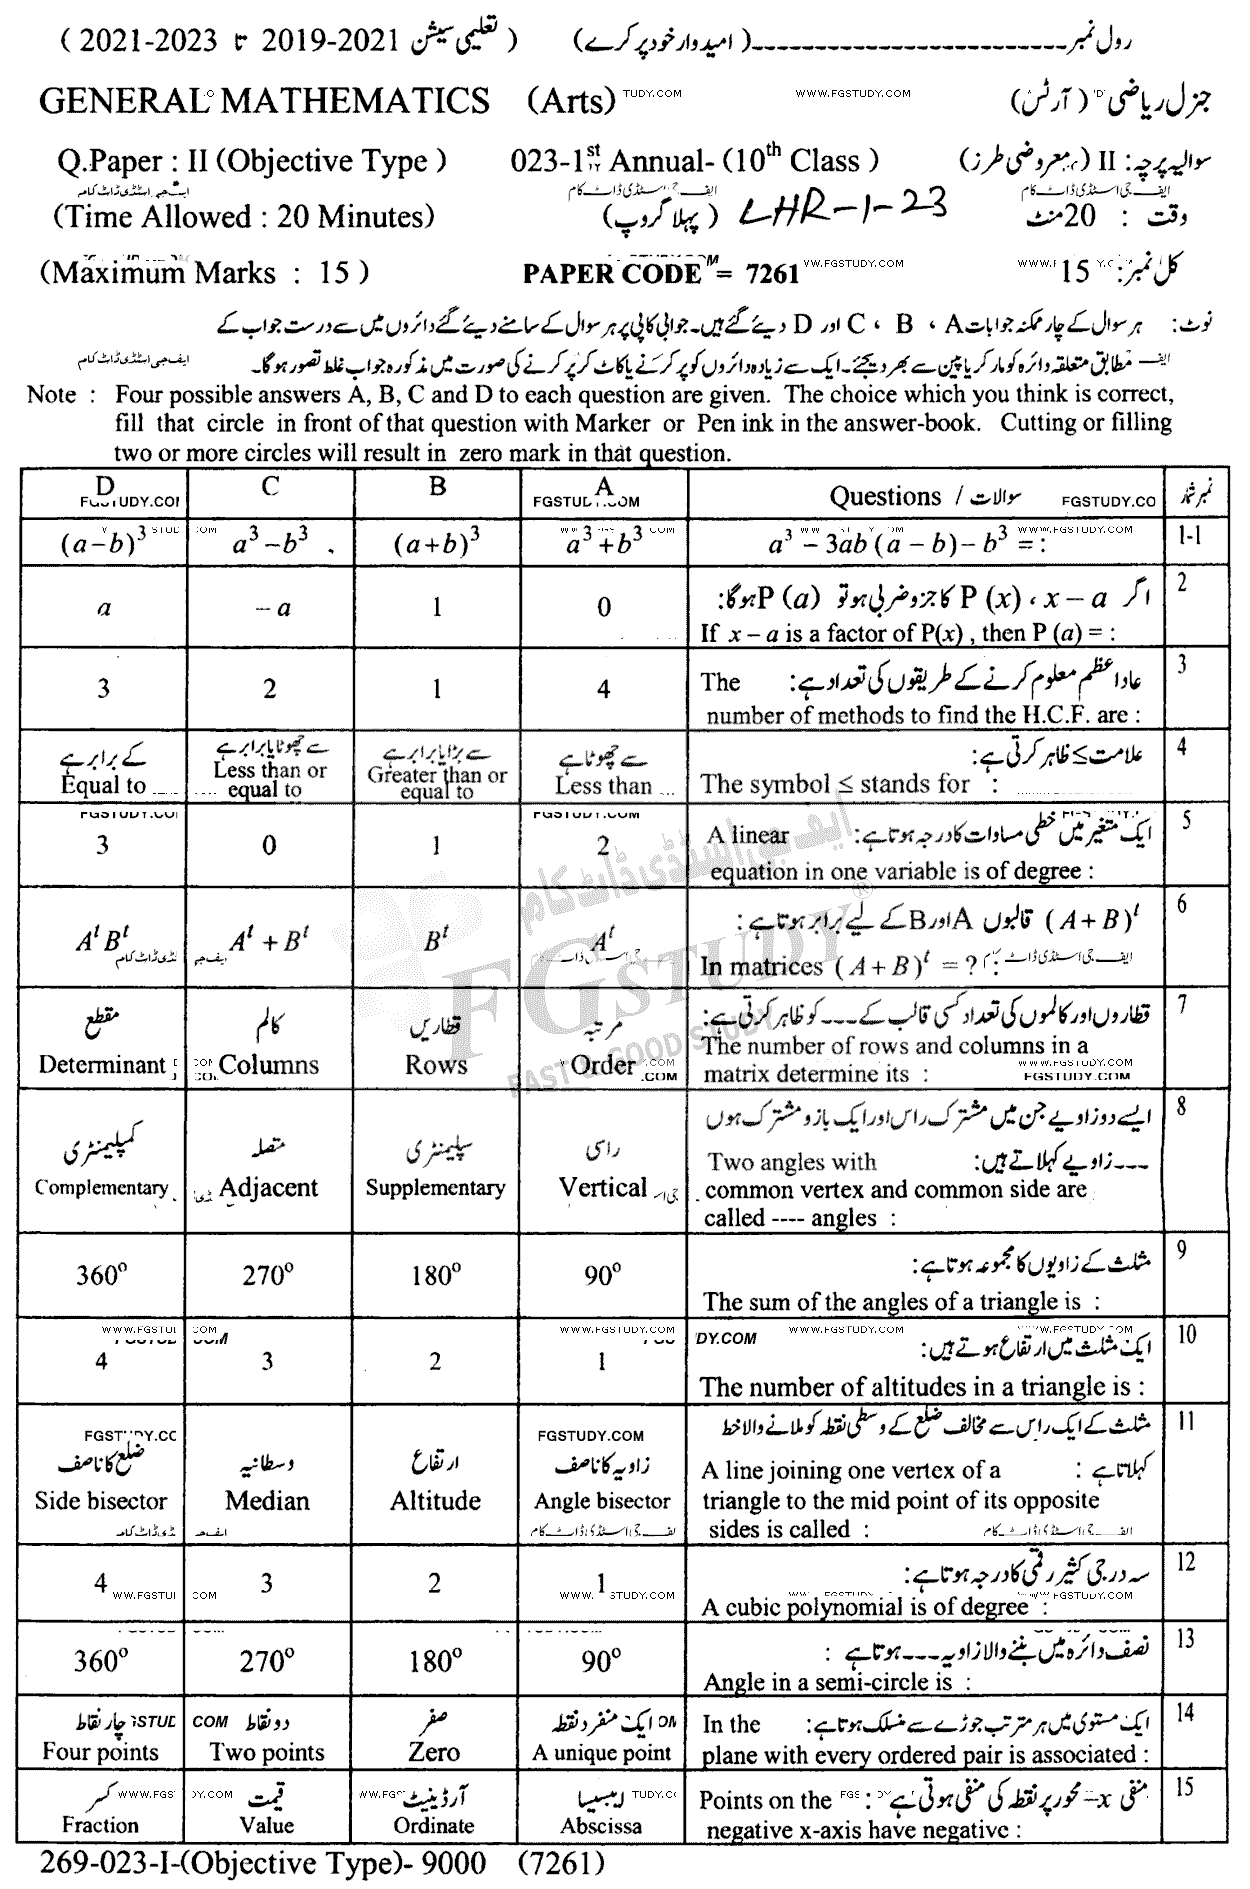 رول نمبر ------------------------ ( امیدوار خود پر کرے ) ( تعلیمی سیشن 2021-2019 تا 2023-2021 )
GENERAL MATHEMATICS (Arts) TUDY.COM WWW.FGSTUDY.COM جنرل ریاضی ( آرٹس )
Q.Paper : II (Objective Type ) 023-1st Annual- (10th Class ) سوالیہ پرچہ : II ( معروضی طرز )
ایف جی اسٹڈی ڈاٹ کام
(Time Allowed : 20 Minutes) ( پہلا گروپ ) LHR-1-23 وقت : 20 منٹ
(Maximum Marks : 15 ) PAPER CODE = 7261 VW.FGSTUDY.COM کل نمبر : 15
نوٹ : ہر سوال کے چار ممکنہ جوابات A ، B ، C اور D دیئے گئے ہیں۔ جوابی کاپی پر ہر سوال کے سامنے دیئے گئے دائروں میں سے درست جواب کے
مطابق متعلقہ دائرہ کو مارکر یا پین سے بھر دیجئے۔ ایک سے زیادہ دائروں کو پر کرنے یا کاٹ کر پر کرنے کی صورت میں مذکورہ جواب غلط تصور ہوگا۔ ایف جی اسٹڈی ڈاٹ کام
Note : Four possible answers A, B, C and D to each question are given. The choice which you think is correct,
fill that circle in front of that question with Marker or Pen ink in the answer-book. Cutting or filling
two or more circles will result in zero mark in that question.
D C B A Questions / سوالات نمبر شمار
(a-b)³ a³-b³ . (a+b)³ a³+b³ a³-3ab(a-b)-b³ = : 1-1
a -a 1 0 اگر x-a ، P(x) کا جزو ضربی ہو تو P(a) ہوگا : 2
If x-a is a factor of P(x) , then P(a) = :
3 2 1 4 عاد اعظم معلوم کرنے کے طریقوں کی تعداد ہے : The 3
number of methods to find the H.C.F. are :
کے برابر ہے سے چھوٹا یا برابر ہے سے بڑا یا برابر ہے سے چھوٹا ہے علامت ≤ ظاہر کرتی ہے : 4
Equal to Less than or equal to Greater than or equal to Less than The symbol ≤ stands for :
3 0 1 2 ایک متغیر میں خطی مساوات کا درجہ ہوتا ہے : A linear 5
equation in one variable is of degree :
AᵗBᵗ Aᵗ+Bᵗ Bᵗ Aᵗ قالبوں A اور B کے لیے برابر ہوتا ہے : (A+B)ᵗ 6
In matrices (A+B)ᵗ = ? :
مقطع کالم قطاریں مرتبہ قطاروں اور کالموں کی تعداد کسی قالب کے ---- کو ظاہر کرتی ہے : 7
Determinant Columns Rows Order The number of rows and columns in a
matrix determine its :
کمپلیمنٹری متصلہ سپلیمنٹری راسی ایسے دو زاویے جن میں مشترک راس اور ایک بازو مشترک ہوں 8
---- زاویے کہلاتے ہیں : Two angles with
Complementary Adjacent Supplementary Vertical common vertex and common side are
called ---- angles :
360º 270º 180º 90º مثلث کے زاویوں کا مجموعہ ہوتا ہے : 9
The sum of the angles of a triangle is :
4 3 2 1 ایک مثلث میں ارتفاع ہوتے ہیں : 10
The number of altitudes in a triangle is :
ضلع کا ناصف وسطانیہ ارتفاع زاویہ کا ناصف مثلث کے ایک راس سے مخالف ضلع کے وسطی نقطہ کو ملانے والا خط 11
کہلاتا ہے : A line joining one vertex of a
Side bisector Median Altitude Angle bisector triangle to the mid point of its opposite
sides is called :
4 3 2 1 سہ درجی کثیر رقمی کا درجہ ہوتا ہے : 12
A cubic polynomial is of degree :
360º 270º 180º 90º نصف دائرہ میں بننے والا زاویہ ---- ہوتا ہے : 13
Angle in a semi-circle is :
چار نقاط دو نقاط صفر ایک منفرد نقطہ ایک مستوی میں ہر مترتب جوڑے سے منسلک ہوتا ہے : In the 14
Four points Two points Zero A unique point plane with every ordered pair is associated :
کسر قیمت آرڈینیٹ ایبسیسا منفی x- محور پر نقطہ کی منفی ہوتی ہے : Points on the 15
Fraction Value Ordinate Abscissa negative x-axis have negative :
ایف جی اسٹڈی ڈاٹ کام
FG STUDY ®
FAST & GOOD STUDY
269-023-I-(Objective Type)- 9000 (7261)